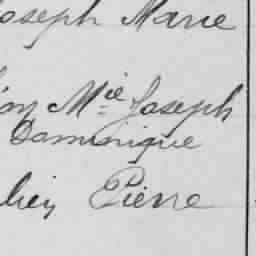 Joseph Marie
Mie Joseph
Dominique
Pierre